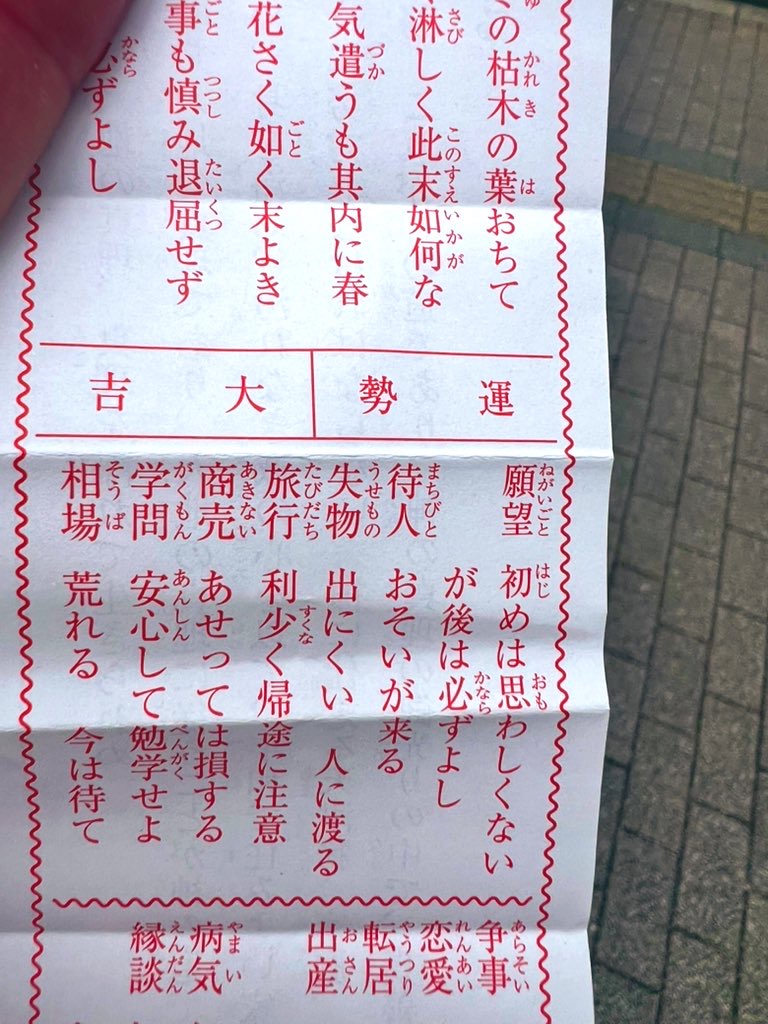 の枯木の葉おちて
淋しく此末如何な
気遣うも其内に春
花さく如く末よき
事も慎み退屈せず
ずよし
運勢 大吉
願望 初めは思わしくない
が後は必ずよし
待人 おそいが来る
失物 出にくい 人に渡る
旅行 利少く帰途に注意
商売 あせっては損する
学問 安心して勉学せよ
相場 荒れる 今は待て
争事
恋愛
転居
出産
病気
縁談